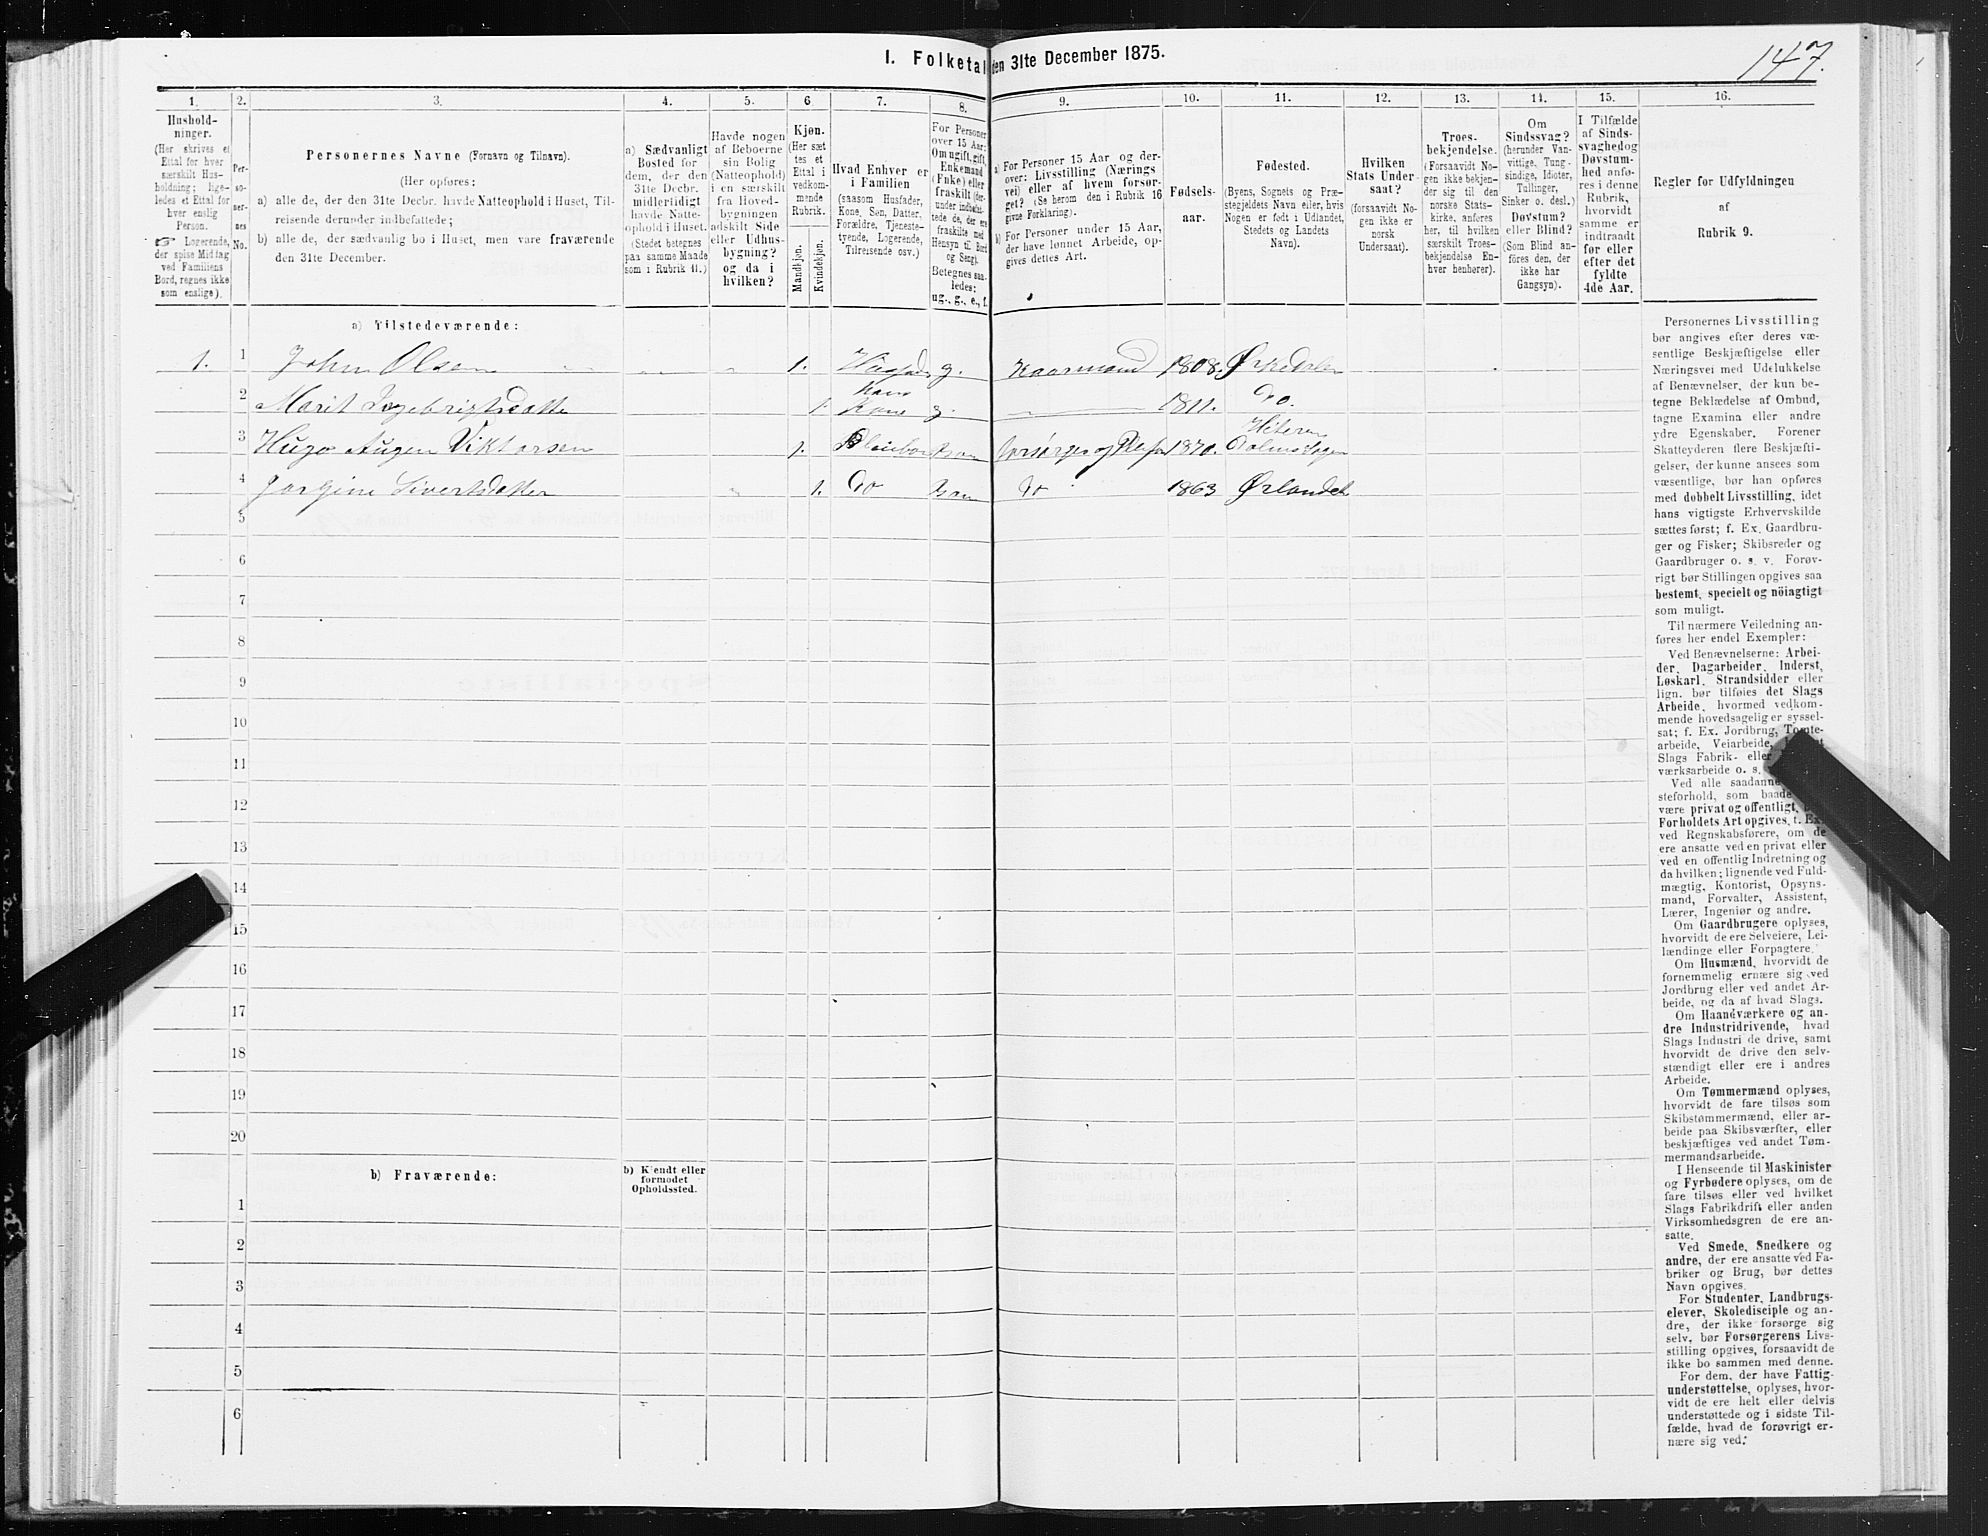 I. Folketal den 31te December 1875.
147.
1. 2. 3. 4. 5. 6 7. 8. 9. 10. 11. 12. 13. 14. 15. 16.
Hushold-
ninger.
(Her skrives et
Ettal for hver
særskilt Hus-
holdning; lige-
ledes et Ettal for
hver enslig
Person.
☞ Logerende,
der spise Middag
ved Familiens
Bord, regnes ikke
som enslige).
Per-
so-
ner-
nes
No.
Personernes Navne (Fornavn og Tilnavn).
(Her opføres:
a) alle de, der den 31te Decbr. havde Natteophold i Huset, Til-
reisende derunder indbefattede;
b) alle de, der sædvanlig bo i Huset, men vare fraværende
den 31te December.
a) Sædvanligt
Bosted for
dem, der den
31te Decbr.
midlertidigt
havde Natte-
ophold i Huset.
(Stedet betegnes
paa samme Maade
som i Rubrik 11.)
Havde nogen
af Beboerne
sin Bolig
(Natteophold)
i en særskilt
fra Hoved-
bygningen
adskilt Side
eller Udhus-
bygning?
og da i
hvilken?
Kjøn.
(Her sæt
tes et
Ettal i
vedkom-
mende
Rubrik.
Mandkjøn.
Kvindekjøn.
Hvad Enhver er
i Familien
(saasom Husfader,
Kone, Søn, Datter,
Forældre, Tjeneste-
tyende, Logerende,
Tilreisende osv.)
For Personer
over 15 Aar:
Om ugift, gift,
Enkemand
(Enke) eller
fraskilt (der-
under indbefat-
tede de, der ere
fraskilte med
Hensyn til Bord
og Seng).
Betegnes saa-
ledes:
ug., g., e., f.
a) For Personer 15 Aar og der-
over: Livsstilling (Nærings
vei) eller af hvem forsør-
get? (Se herom den i Rubrik 16
givne Forklaring).
b) For Personer under 15 Aar,
der have lønnet Arbeide, op-
gives dettes Art.
Fødsels-
aar.
Fødested.
(Byens, Sognets og Præ-
stegjeldets Navn eller, hvis
Nogen er født i Udlandet,
Stedets og Landets
Navn).
Hvilken
Stats Under-
saat?
(forsaavidt No-
gen ikke er
norsk
Undersaat).
Troes-
bekjendelse.
(Forsaavidt No-
gen ikke bekjen-
der sig til den
norske Stats-
kirke, anføres
her, til hvilken
særskilt Troes-
bekjendelse En-
hver henhører).
Om
Sindssvag?
(herunder Van-
vittige, Tung-
sindige, Idioter,
Tullinger,
Sinker o. desl.)
Døvstum?
eller Blind?
(Som Blind an-
føres den, der
ikke har
Gangsyn).
I Tilfælde
af Sinds-
svaghed og
Døvstum-
hed anfø-
res i denne
Rubrik,
hvorvidt
samme er
indtraadt
før eller
efter det
fyldte
4de Aar.
Regler for Udfyldningen
af
Rubrik 9.
a) Tilstedeværende:
1. 1 John Olsen 1. g. Kaarmand 1808. Ørkedalen
2 Marit Ingebrigtsdatter 1. Kone g. 1811. Do.
3 Hugo Augen Viktorsen 1. 1870. Hiteren
4 Jorgine Sivertsdatter 1. Do Do 1863 Ørlandet
5
6
7
8
9
10
11
12
13
14
15
16
17
18
19
20
b) Fraværende:
b) Kjendt eller
formodet
Opholdssted.
1
2
3
4
5
6
Personernes Livsstilling
bør angives efter deres væ-
sentlige Beskjæftigelse eller
Næringsvei med Udelukkelse
af Benævnelser, der kun be-
tegne Beklædelse af Ombud,
tagne Examina eller andre
ydre Egenskaber. Forener
Skatteyderen flere Beskjæfti-
gelser, der kunne ansees som
væsentlige, bør han opføres
med dobbelt Livsstilling, idet
hans vigtigste Erhvervskilde
sættes først; f. Ex. Gaardbru-
ger og Fisker; Skibsreder og
Gaardbruger o. s. v. Forøv-
rigt bør Stillingen opgives saa
bestemt, specielt og nöiagtigt
som muligt.
Til nærmere Veiledning an-
føres her endel Exempler:
Ved Benævnelserne: Arbei-
der, Dagarbeider, Inderst,
Løskarl, Strandsidder eller
lign. bør tilføies det Slags
Arbeide, hvormed vedkom-
mende hovedsagelig er syssel-
sat; f. Ex. Jordbrug, Tomte-
arbeide, Veiarbeide,
Slags Fabrik- eller
værksarbeide o. s.
Ved alle saadanne
steforhold, som baade
være privat og offentligt,
Forholdets Art opgives, t. Ex.
ved Regnskabsførere, om de
ere ansatte ved en privat eller
ved en offentlig Indretning og
da hvilken; lignende ved Fuld-
mægtig, Kontorist, Opsyns-
mand, Forvalter, Assistent,
Lærer, Ingeniør og andre.
Om Gaardbrugere oplyses,
hvorvidt de ere Selveiere, Lei-
lændinge eller Forpagtere.
Om Husmænd, hvorvidt de
fornemmelig ernære sig ved
Jordbrug eller ved andet Ar-
beide, og da af hvad Slags.
Om Haandværkere og an-
dre Industridrivende, hvad
Slags Industri de drive, samt
hvorvidt de drive den selv-
stændigt eller ere i andres
Arbeide.
Om Tømmermænd oplyses,
hvorvidt de fare tilsøs som
Skibstømmermænd, eller ar-
beide paa Skibsværfter, eller
beskjæftiges ved andet Tøm-
mermandsarbeide.
I Henseende til Maskinister
og Fyrbødere oplyses, om de
fare tilsøs eller ved hvilket
Slags Fabrikdrift eller anden
Virksomhedsgren de ere an-
satte.
Ved Smede, Snedkere og
andre, der ere ansatte ved Fa-
briker og Brug, bør dettes
Navn opgives.
For Studenter, Landbrugs-
elever, Skoledisciple og an-
dre, der ikke forsørge sig
selv, bør Forsørgerens Livs-
stilling opgives, forsaavidt de
ikke bo sammen med denne.
For dem, der have Fattig-
understøttelse, oplyses, hvor-
vidt de ere helt eller delvis
understøttede og i sidste Til-
fælde, hvad de forøvrigt er-
nære sig ved.